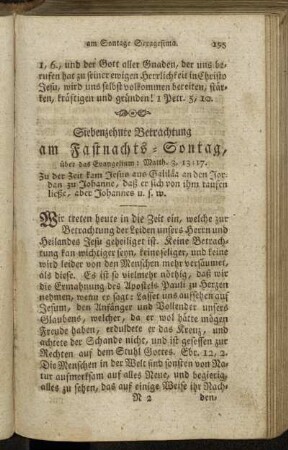 am Sontage Sexagesimä. 195
1, 6., und der Gott aller Gnaden, der uns be-
rufen hat zu seiner ewigen Herrlichkeit in Christo
Jesu, wird uns selbst volkommen bereiten, stär-
ken, kräftigen und gründen! 1 Pett. 5, 10.
Siebenzehnte Betrachtung
am Fastnachts-Sontag,
über das Evangelium: Matth. 3. 13:17.
Zu der Zeit kam Jesus aus Galiläa an den Jor-
dan zu Johanne, daß er sich von ihm taufen
ließe, aber Johannes u. s. w.
Wir treten heute in die Zeit ein, welche zur
Betrachtung der Leiden unsers Herrn und
Heilandes Jesu geheiliget ist. Keine Betrach-
tung kan wichtiger seyn, keine seliger, und keine
wird leider von den Menschen mehr versäumet,
als diese. Es ist so vielmehr nöthig, daß wir
die Ermahnung des Apostels Pauli zu Herzen
nehmen, wenn er sagt: Lasset uns aufsehen auf
Jesum, den Anfänger und Vollender unsers
Glaubens, welcher, da er wol hätte mögen
Freude haben, erduldete er das Kreuz, und
achtete der Schande nicht, und ist gesessen zur
Rechten auf dem Stuhl Gottes. Ebr. 12, 2.
Die Menschen in der Welt sind sonsten von Na-
tur aufmerksam auf alles Neue, und begierig,
alles zu sehen, das auf einige Weise ihr Nach-
N 2 den,